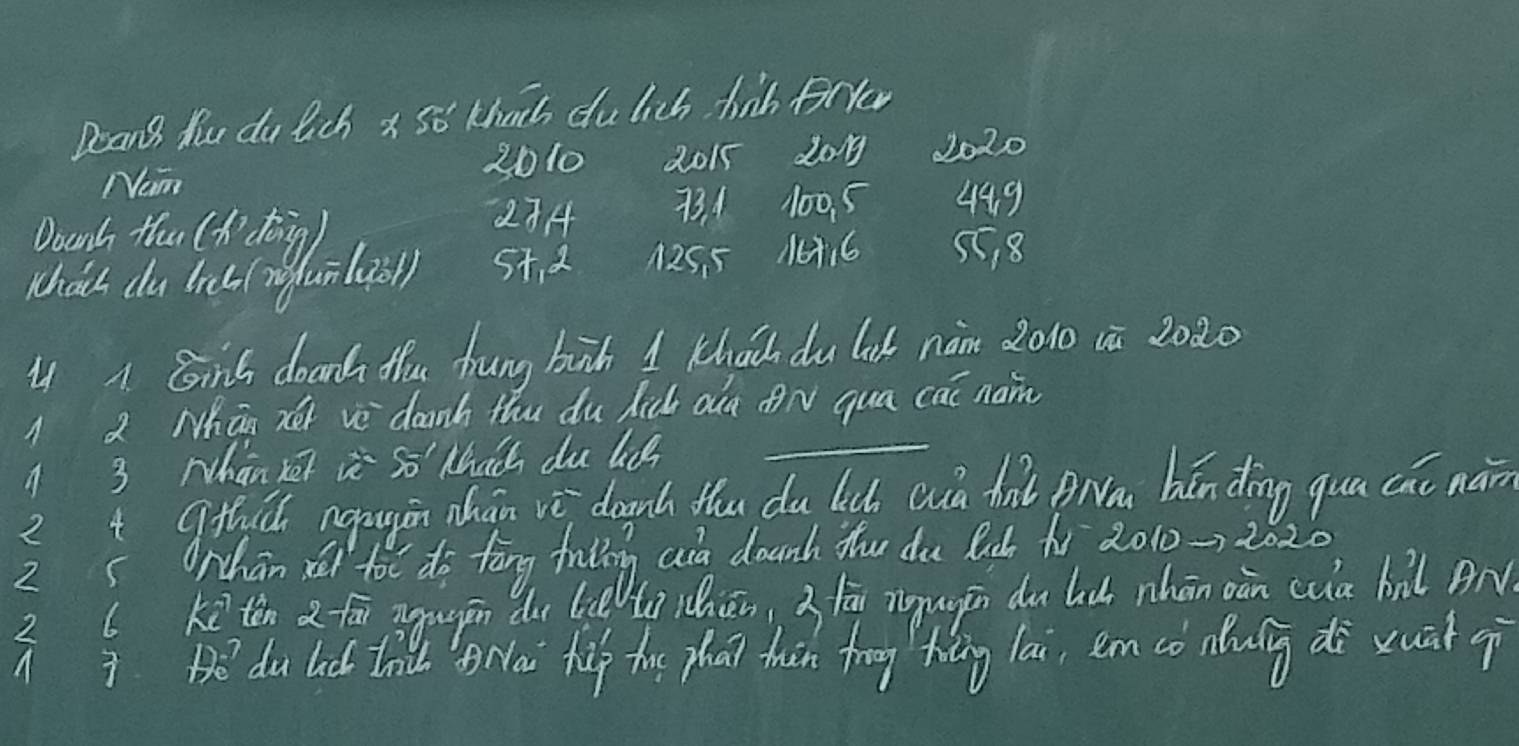 Doanh thu du lịch & số khách du lịch tỉnh ĐNai
Năm 2010 2015 2019 2020
Doanh thu (tỉ đồng) 27,4 73,1 100,5 44,9
Khách du lịch (nghìn lượt) 57,2 125,5 167,6 55,8
4 1 Tính doanh thu trung bình 1 khách du lịch năm 2010 và 2020
1 2 Nhận xét về doanh thu du lịch của ĐN qua các năm
1 3 Nhận xét về số khách du lịch
2 4 Gthích nguyên nhân về doanh thu du lịch của tỉnh ĐNai biến động qua các năm
2 5 Nhận xét tốc độ tăng trưởng của doanh thu du lịch từ 2010 → 2020
2 6 Kể tên 2 tài nguyên du lịch tự nhiên, 2 tài nguyên du lịch nhân văn của tỉnh ĐN
1 7 Để du lịch tỉnh ĐNai tiếp tục phát triển trong tương lai, em có những đề xuất gì